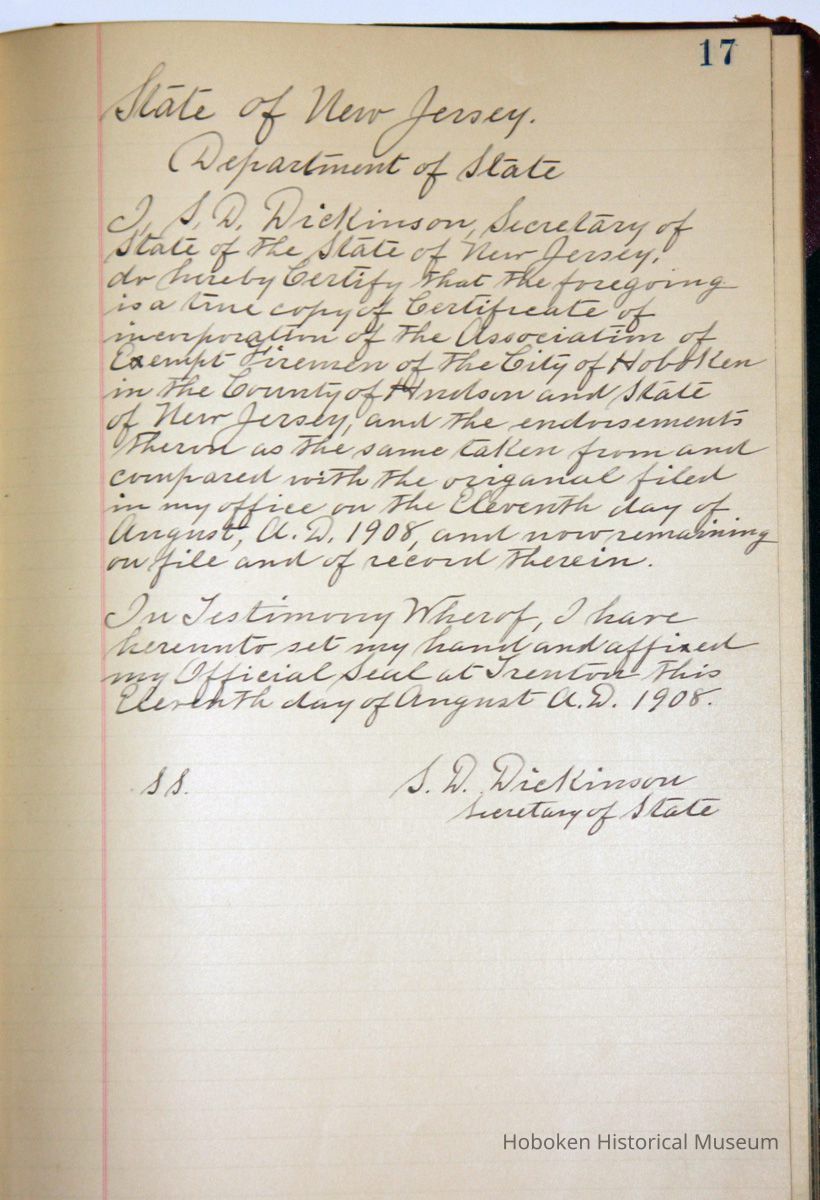 17
State of New Jersey.
Department of State
I, S. D. Dickinson, Secretary of
State of the State of New Jersey,
do hereby Certify that the foregoing
is a true copy of Certificate of
incorporation of the Association of
Exempt Firemen of the City of Hoboken
in the County of Hudson and State
of New Jersey, and the endorsements
theron as the same taken from and
compared with the origanal filed
in my office on the Eleventh day of
August, A. D. 1908, and now remaining
on file and of record therein.
In Testimony Wherof, I have
hereunto set my hand and affixed
my Official Seal at Trenton this
Eleventh day of August A. D. 1908.
S S.
S. D. Dickinson
Secretary of State
Hoboken Historical Museum